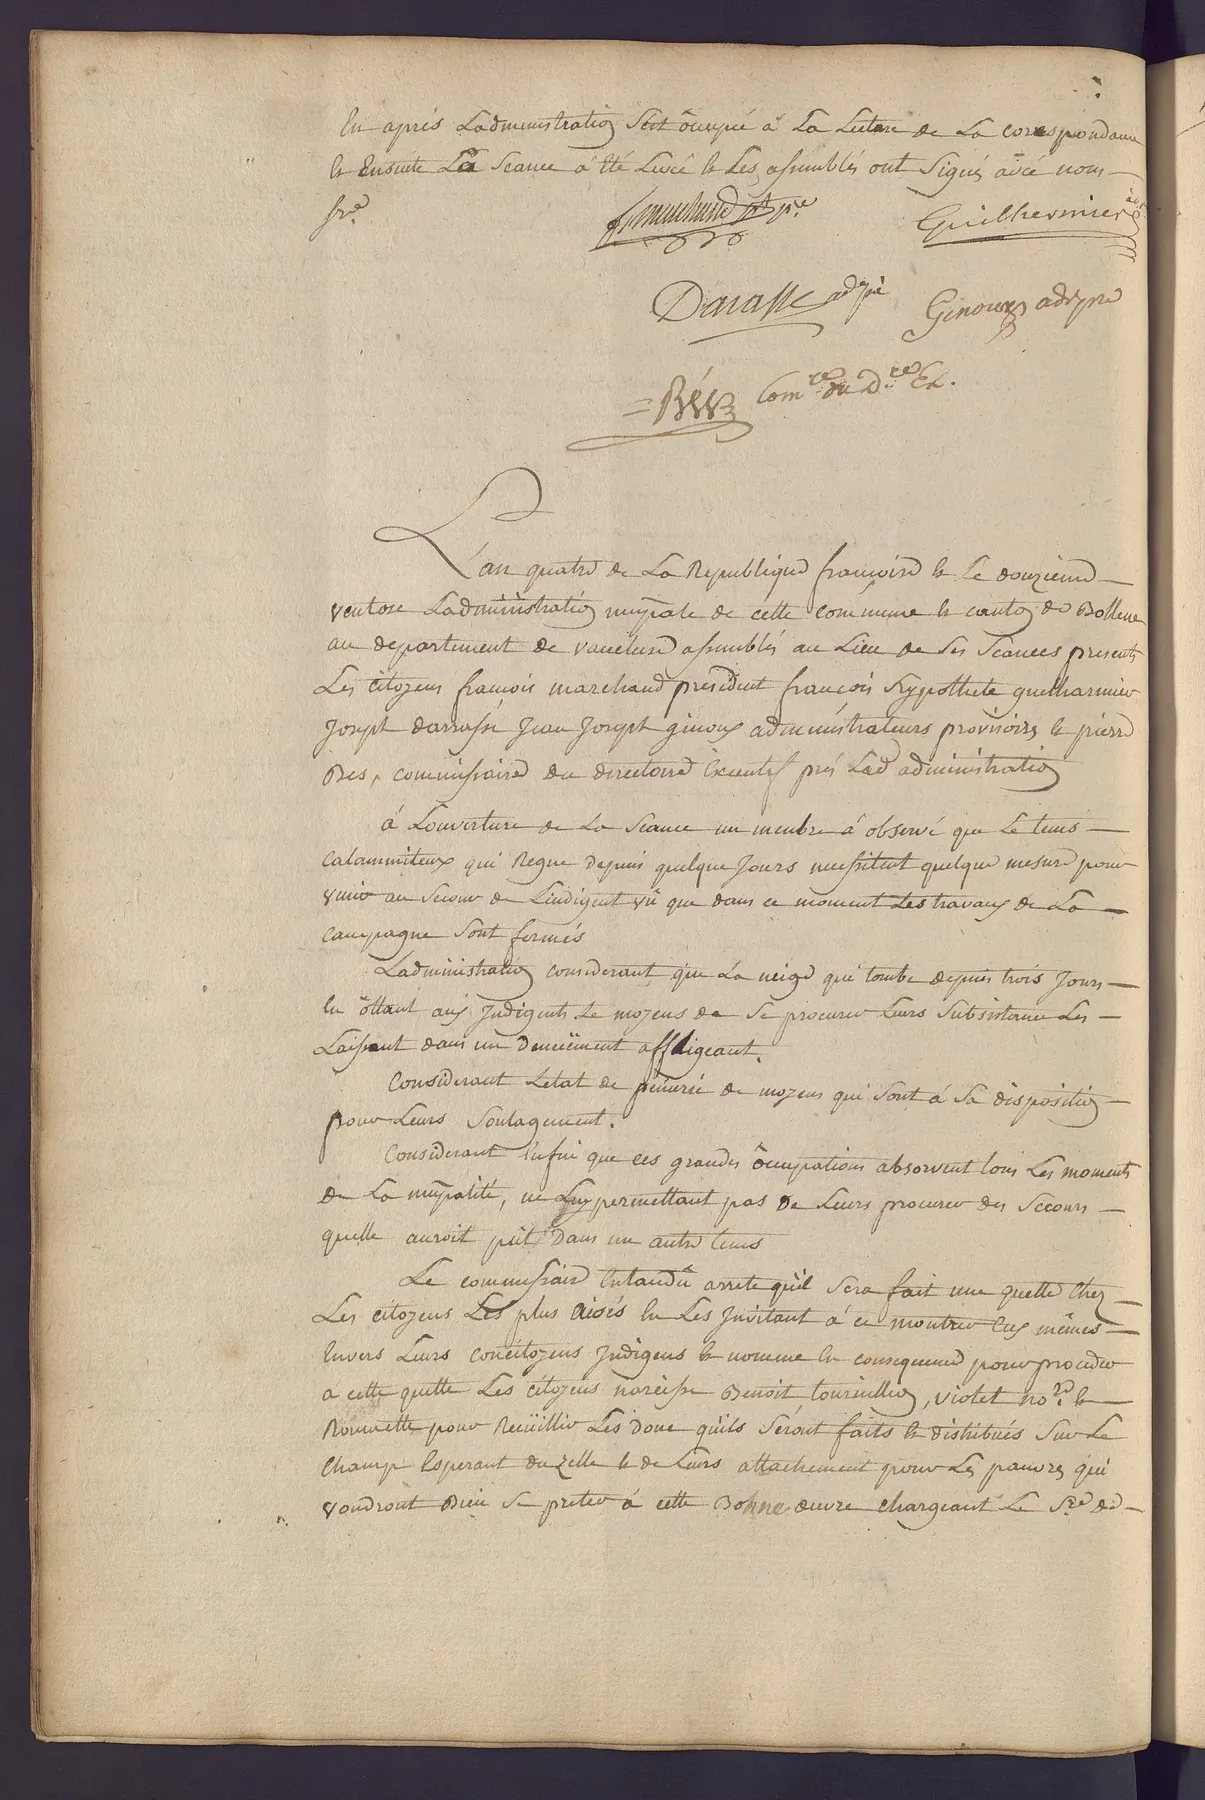 En après Ladministration S'est ôcupée à La Lecture de La correspondance
& Ensuite La Séance á été Levée & Les assemblés ont Signés avéc nom
sre.
f. marchand pt pre.
Guilhermier ad.
Darasse ad. pre
Ginoux ad. pre
= Bés Comre. du Dre. Ex.
L'an quatre de La Republique francoise & Le douzieme
ventose Ladministration mupale de cette commune & canton de Bollene
au departement de vaucluse assemblés au Lieu de Ses Séances presents
Les citoyens francois marchand president françois hypolhete guilharmier
Joseph darrasse Jean Joseph ginoux administrateurs provisoires & pierre
Bes, commissaire du directoire Executif prés Lad administration
á Louverture de La Séance un membre á observé que Le tems
calammiteux qui Regne depuis quelque Jours necessitent quelque mesure pour
venir au Secour de Lindigent vû que dans ce moment Les travaux de La
campagne Sont fermés
Ladministration considerant que La neige qui tombe depuis trois Jours
En ôttant aux Indigents Le moyens de Se procurer Leurs Subsistance Les
Laissent dans un denuëment affligeant.
Considerant Letat de pénurie de moyens qui Sont á Sa disposition
pour Leurs Soulagement.
Considerant Enfin que ces grandes ôcupations absorvent tous Les moments
de La mupalité, ne Luy permettant pas de Leurs procurer des Secours
quelle auroit pût dans un autre tems
Le commissaire Entandû arrete qu'il Sera fait une quette chez
Les citoyens Les plus aisés En Les Invitant á ce montrer Eux mêmes
Envers Leurs concitoyens Indigens & nomme En consequence pour proceder
a cette quette Les citoyens narcisse Benoit tourrillon, violet nore. &
Roumette pour Recüillir Les donc quils Séront faits & distribués Sur Le
champ Esperant du zelle & de Leurs attachement pour Les pauvres qui
voudront Bien Se preter á cette Bohne œuvre chargeant Le Sre. de